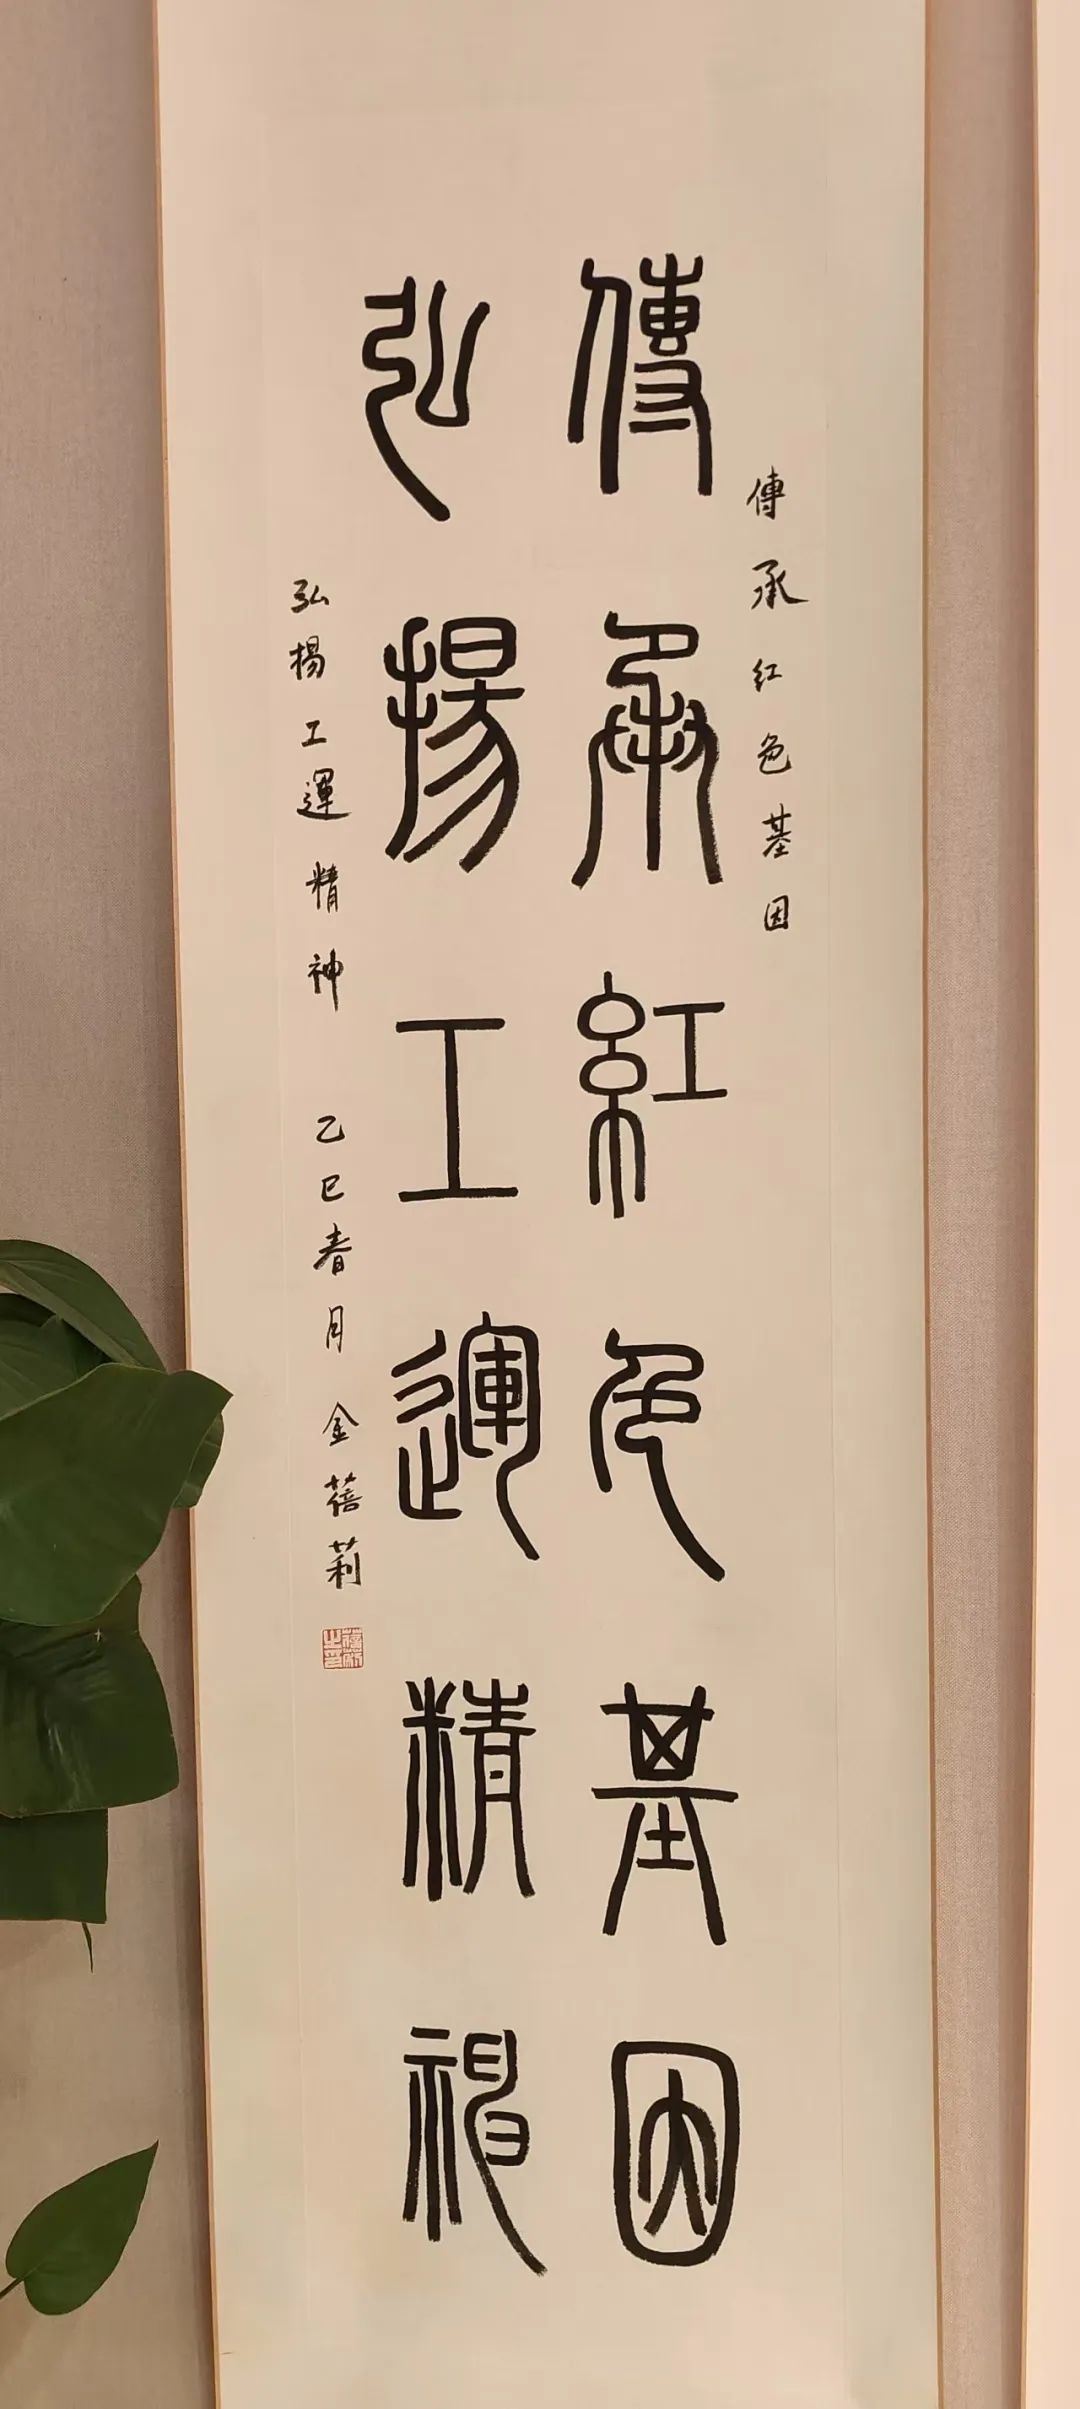 傳承紅色基因
弘揚工運精神
傳承红色基因
弘揚工運精神 乙巳春月 金蓓莉